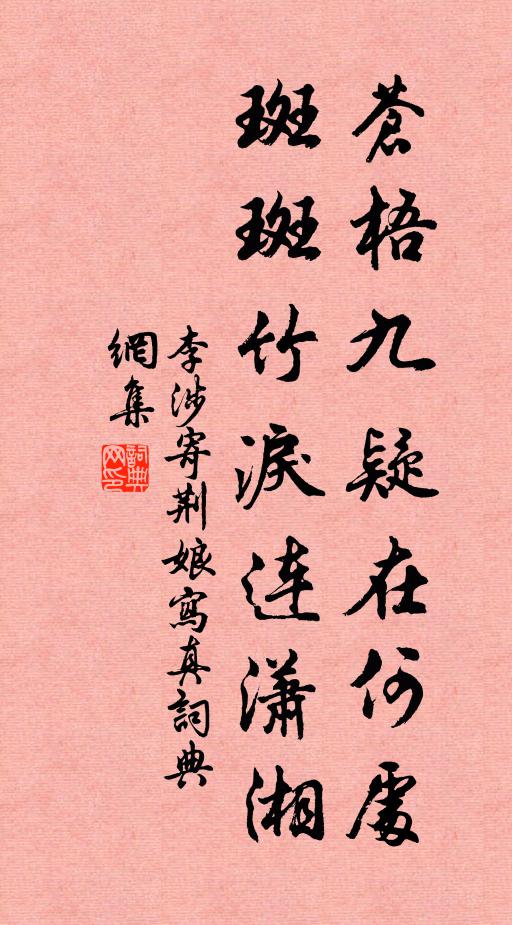 蒼梧九疑在何處
斑斑竹淚連瀟湘
李涉寄荆娘寫真詞典
網集
詞典网印